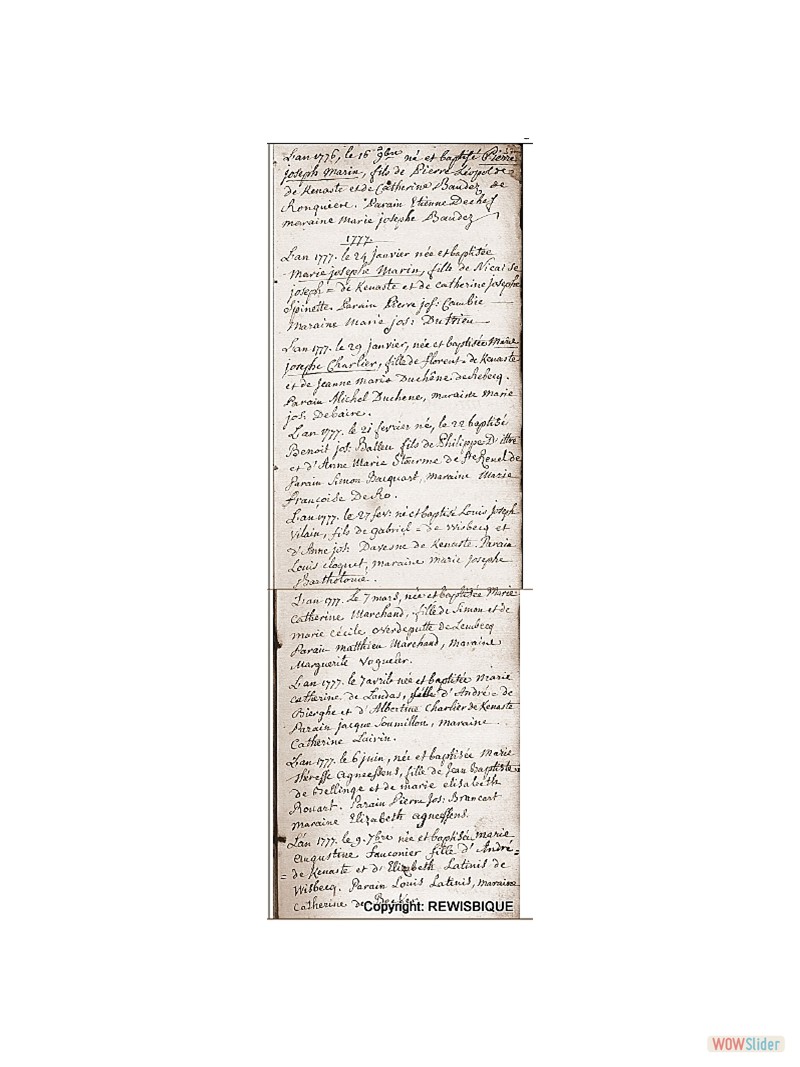 L'an 1776, le 16 9bre né et baptisé Pierre
joseph Marin, fils de Pierre Léopol =
de Kenaste et de Catherine Baudez de
Ronquiere. Parain Etienne Dechef
maraine Marie josephe Baudez
1777.
L'an 1777. le 24 janvier née et baptisée
Marie josephe Marin, fille de Nicaise
joseph = de Kenaste et de catherine josephe
Spinette. Parain Pierre jos: Cambie
Maraine Marie jos: Dutrieu
L'an 1777. le 29 janvier, née et baptisée Marie
josephe Charlier, fille de florent = de Kenaste
et de Jeanne marie Duchêne de Rebecq.
Parain Michel Duchene, maraine marie
jos: Debaire.
L'an 1777. le 21 fevrier né, le 22 baptisé
Benoit jos: Balleu fils de Philippe D'ittre
et d'Anne Marie Stourme de Ste Renelde
Parain Simon Bacquart, maraine Marie
françoise De Ro.
L'an 1777. le 27 fev: né et baptisé Louis joseph
Vilain, fils de gabriel = de wisbecq et
d'Anne jos: Davesne de Kenaste. Parain
Louis cloquet, maraine marie josephe
Bartholomé.
L'an 1777. Le 7 mars, née et baptisée Marie
Catherine Marchand, fille de Simon et de
marie cécile overdeputte de Lembecq
Parain matthieu Marchand, maraine
Marguerite Vogueler.
L'an 1777. le 7 avril née et baptisée marie
catherine de Landas, fille d'André = de
Bierghe et d'Albertine Charlier de Kenaste
Parain jacque Soumillon, maraine
Catherine Lairin.
L'an 1777. le 6 juin, née et baptisée Marie
thérésse Agneessens, fille de Jean Baptiste =
de Bellinge et de marie elisabeth
Rouart. Parain Pierre Jos: Brancart
maraine Elizabeth agneessens.
L'an 1777. le 9. 7bre née et baptisée marie
augustine fauconier fille d'André =
= de Kenaste et d'Elizabeth Latinis de
Wisbecq. Parain Louis Latinis, maraine
catherine de Becker
Copyright: REWISBIQUE
WOWSlider